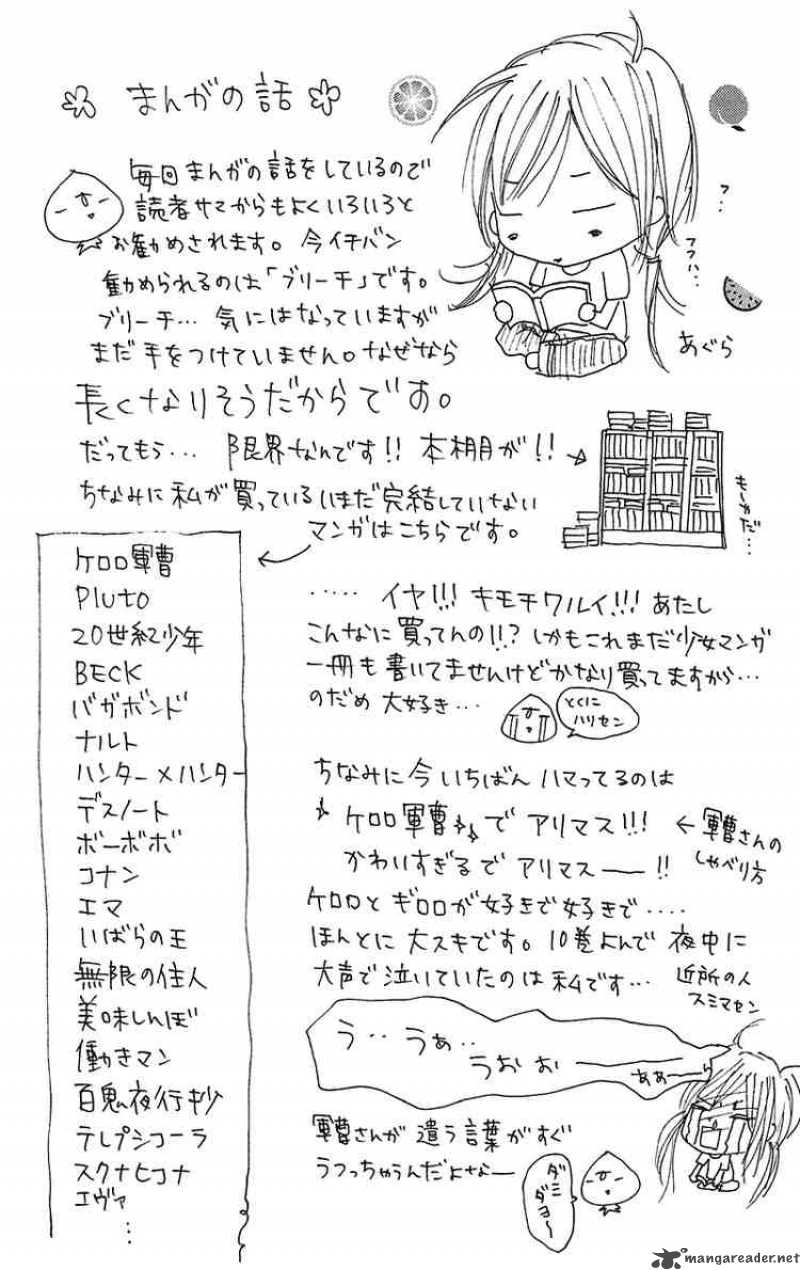 まんがの話
毎回まんがの話をしているので
読者サマからもよくいろいろと
お勧めされます。今イチバン
勧められるのは「ブリーチ」です。
ブリーチ…気にはなっていますが
まだ手をつけていません。なぜなら
長くなりそうだからです。
だってもう…限界なんです!!本棚が!!
ちなみに私が買っているいまだ完結していない
マンガはこちらです。
フ…
フフハ…
あぐら
も〜ダだ…
ケロロ軍曹
Pluto
20世紀少年
BECK
バガボンド
ナルト
ハンター×ハンター
デスノート
ボーボボ
コナン
エマ
いばらの王
無限の住人
美味しんぼ
働きマン
百鬼夜行抄
テレプシコーラ
スクナヒコナ
エヴァ
…
……イヤ!!!キモチワルイ!!!あたし
こんなに買ってんの!!?しかもこれまだ少女マンガ
一冊も書いてませんけどかなり買ってますから…
のだめ大好き…
とくに
ハリセン
ちなみに今いちばんハマってるのは
ケロロ軍曹でアリマス!!!
←軍曹さんの
しゃべり方
かわいすぎるでアリマスー!!
ケロロとギロロが好きで好きで….
ほんとに大スキです。10巻よんで夜中に
大声で泣いていたのは私です…
近所の人
スミマセン
う‥うぁ‥
うおおーー
ああーー
軍曹さんが遣う言葉がすぐ
うつっちゃうんだよなー
ダミ
ダヨ〜
mangareader.net